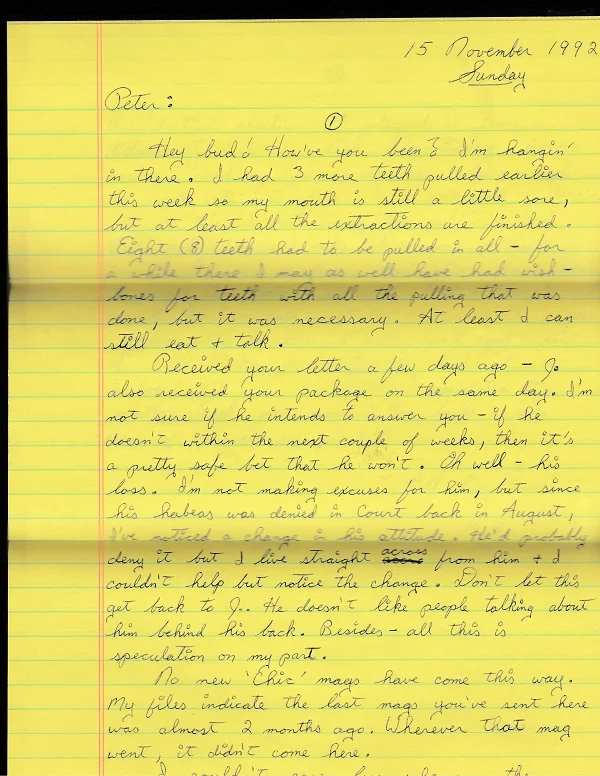 15 November 1992
Sunday
Peter:
1
Hey bud! How've you been? I'm hangin'
in there. I had 3 more teeth pulled earlier
this week so my mouth is still a little sore,
but at least all the extractions are finished.
Eight (8) teeth had to be pulled in all - for
a while there I may as well have had wish-
bones for teeth with all the pulling that was
done, but it was necessary. At least I can
still eat + talk.
Received your letter a few days ago - J.
also received your package on the same day. I'm
not sure if he intends to answer you - if he
doesn't within the next couple of weeks, then it's
a pretty safe bet that he won't. Oh well - his
loss. I'm not making excuses for him, but since
his habeas was denied in Court back in August,
I've noticed a change in his attitude. He'd probably
deny it but I live straight across from him + I
couldn't help but notice the change. Don't let this
get back to J.. He doesn't like people talking about
him behind his back. Besides - all this is
speculation on my part.
No new 'Chic' mags have come this way.
My files indicate the last mags you've sent here
was almost 2 months ago. Wherever that mag
went, it didn't come here.
I couldn't